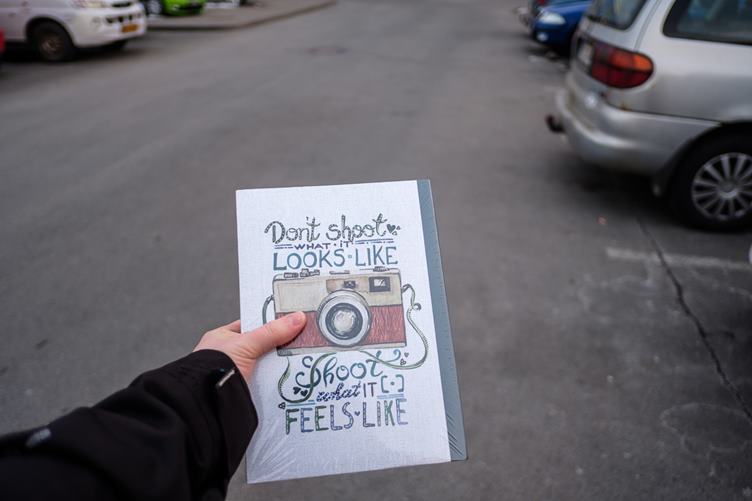 Don't shoot
WHAT IT
LOOKS·LIKE
Shoot
what IT [·]
FEELS·LIKE